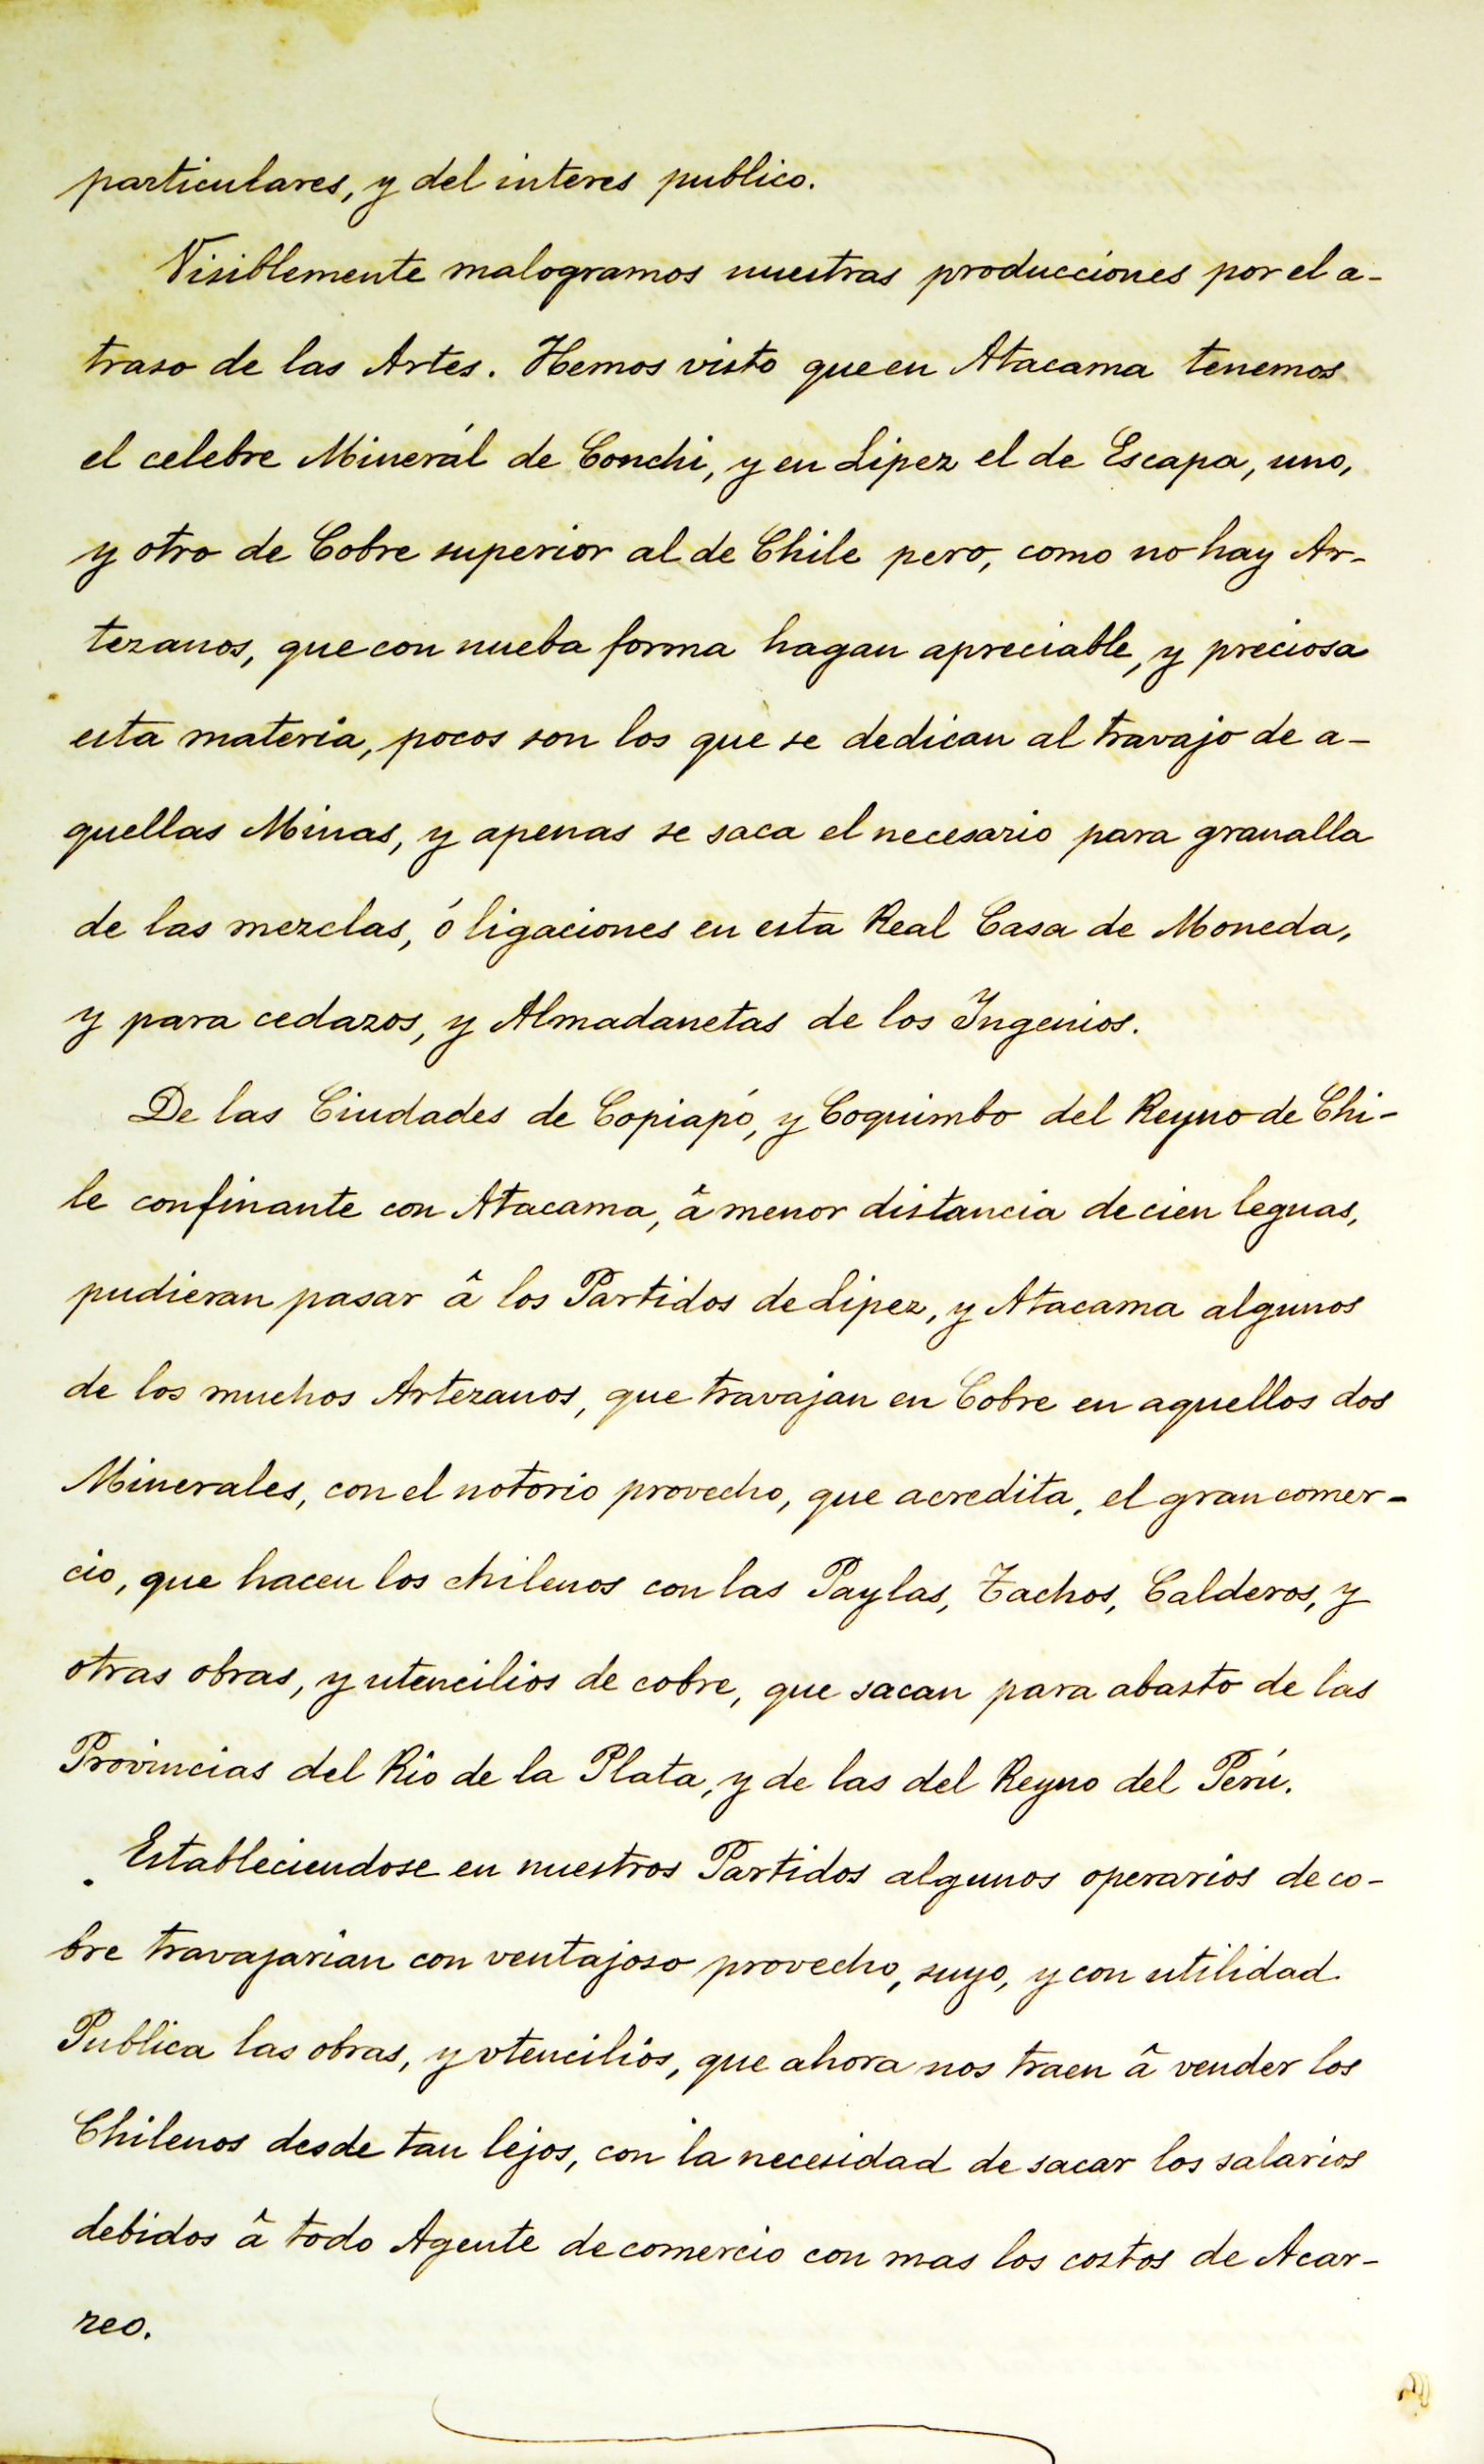 particulares, y del interes publico.
Visiblemente malogramos nuestras producciones por el a-
traso de las Artes. Hemos visto que en Atacama tenemos
el celebre Minerál de Conchi, y en Lipez el de Escapa, uno,
y otro de Cobre superior al de Chile pero, como no hay Ar-
tezanos, que con nueba forma hagan apreciable, y preciosa
esta materia, pocos son los que se dedican al travajo de a-
quellas Minas, y apenas se saca el necesario para granalla
de las mezclas, ó ligaciones en esta Real Casa de Moneda,
y para cedazos, y Almadanetas de los Ingenios.
De las Ciudades de Copiapó, y Coquimbo del Reyno de Chi-
le confinante con Atacama, â menor distancia de cien leguas,
pudieran pasar â los Partidos de Lipez, y Atacama algunos
de los muchos Artezanos, que travajan en Cobre en aquellos dos
Minerales, con el notorio provecho, que acredita, el gran comer-
cio, que hacen los chilenos con las Paylas, Tachos, Calderos, y
otras obras, y utencilios de cobre, que sacan para abasto de las
Provincias del Rio de la Plata, y de las del Reyno del Perú.
Estableciendose en nuestros Partidos algunos operarios de co-
bre travajarian con ventajoso provecho, suyo, y con utilidad
Publica las obras, y vtencilios, que ahora nos traen â vender los
Chilenos desde tan lejos, con la necesidad de sacar los salarios
debidos â todo Agente de comercio con mas los costos de Acar-
reo.